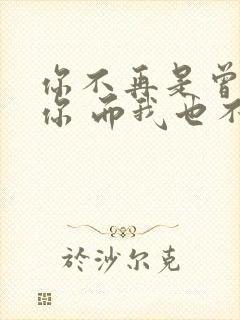 你不再是曾
你 而我也不
於沙尔克